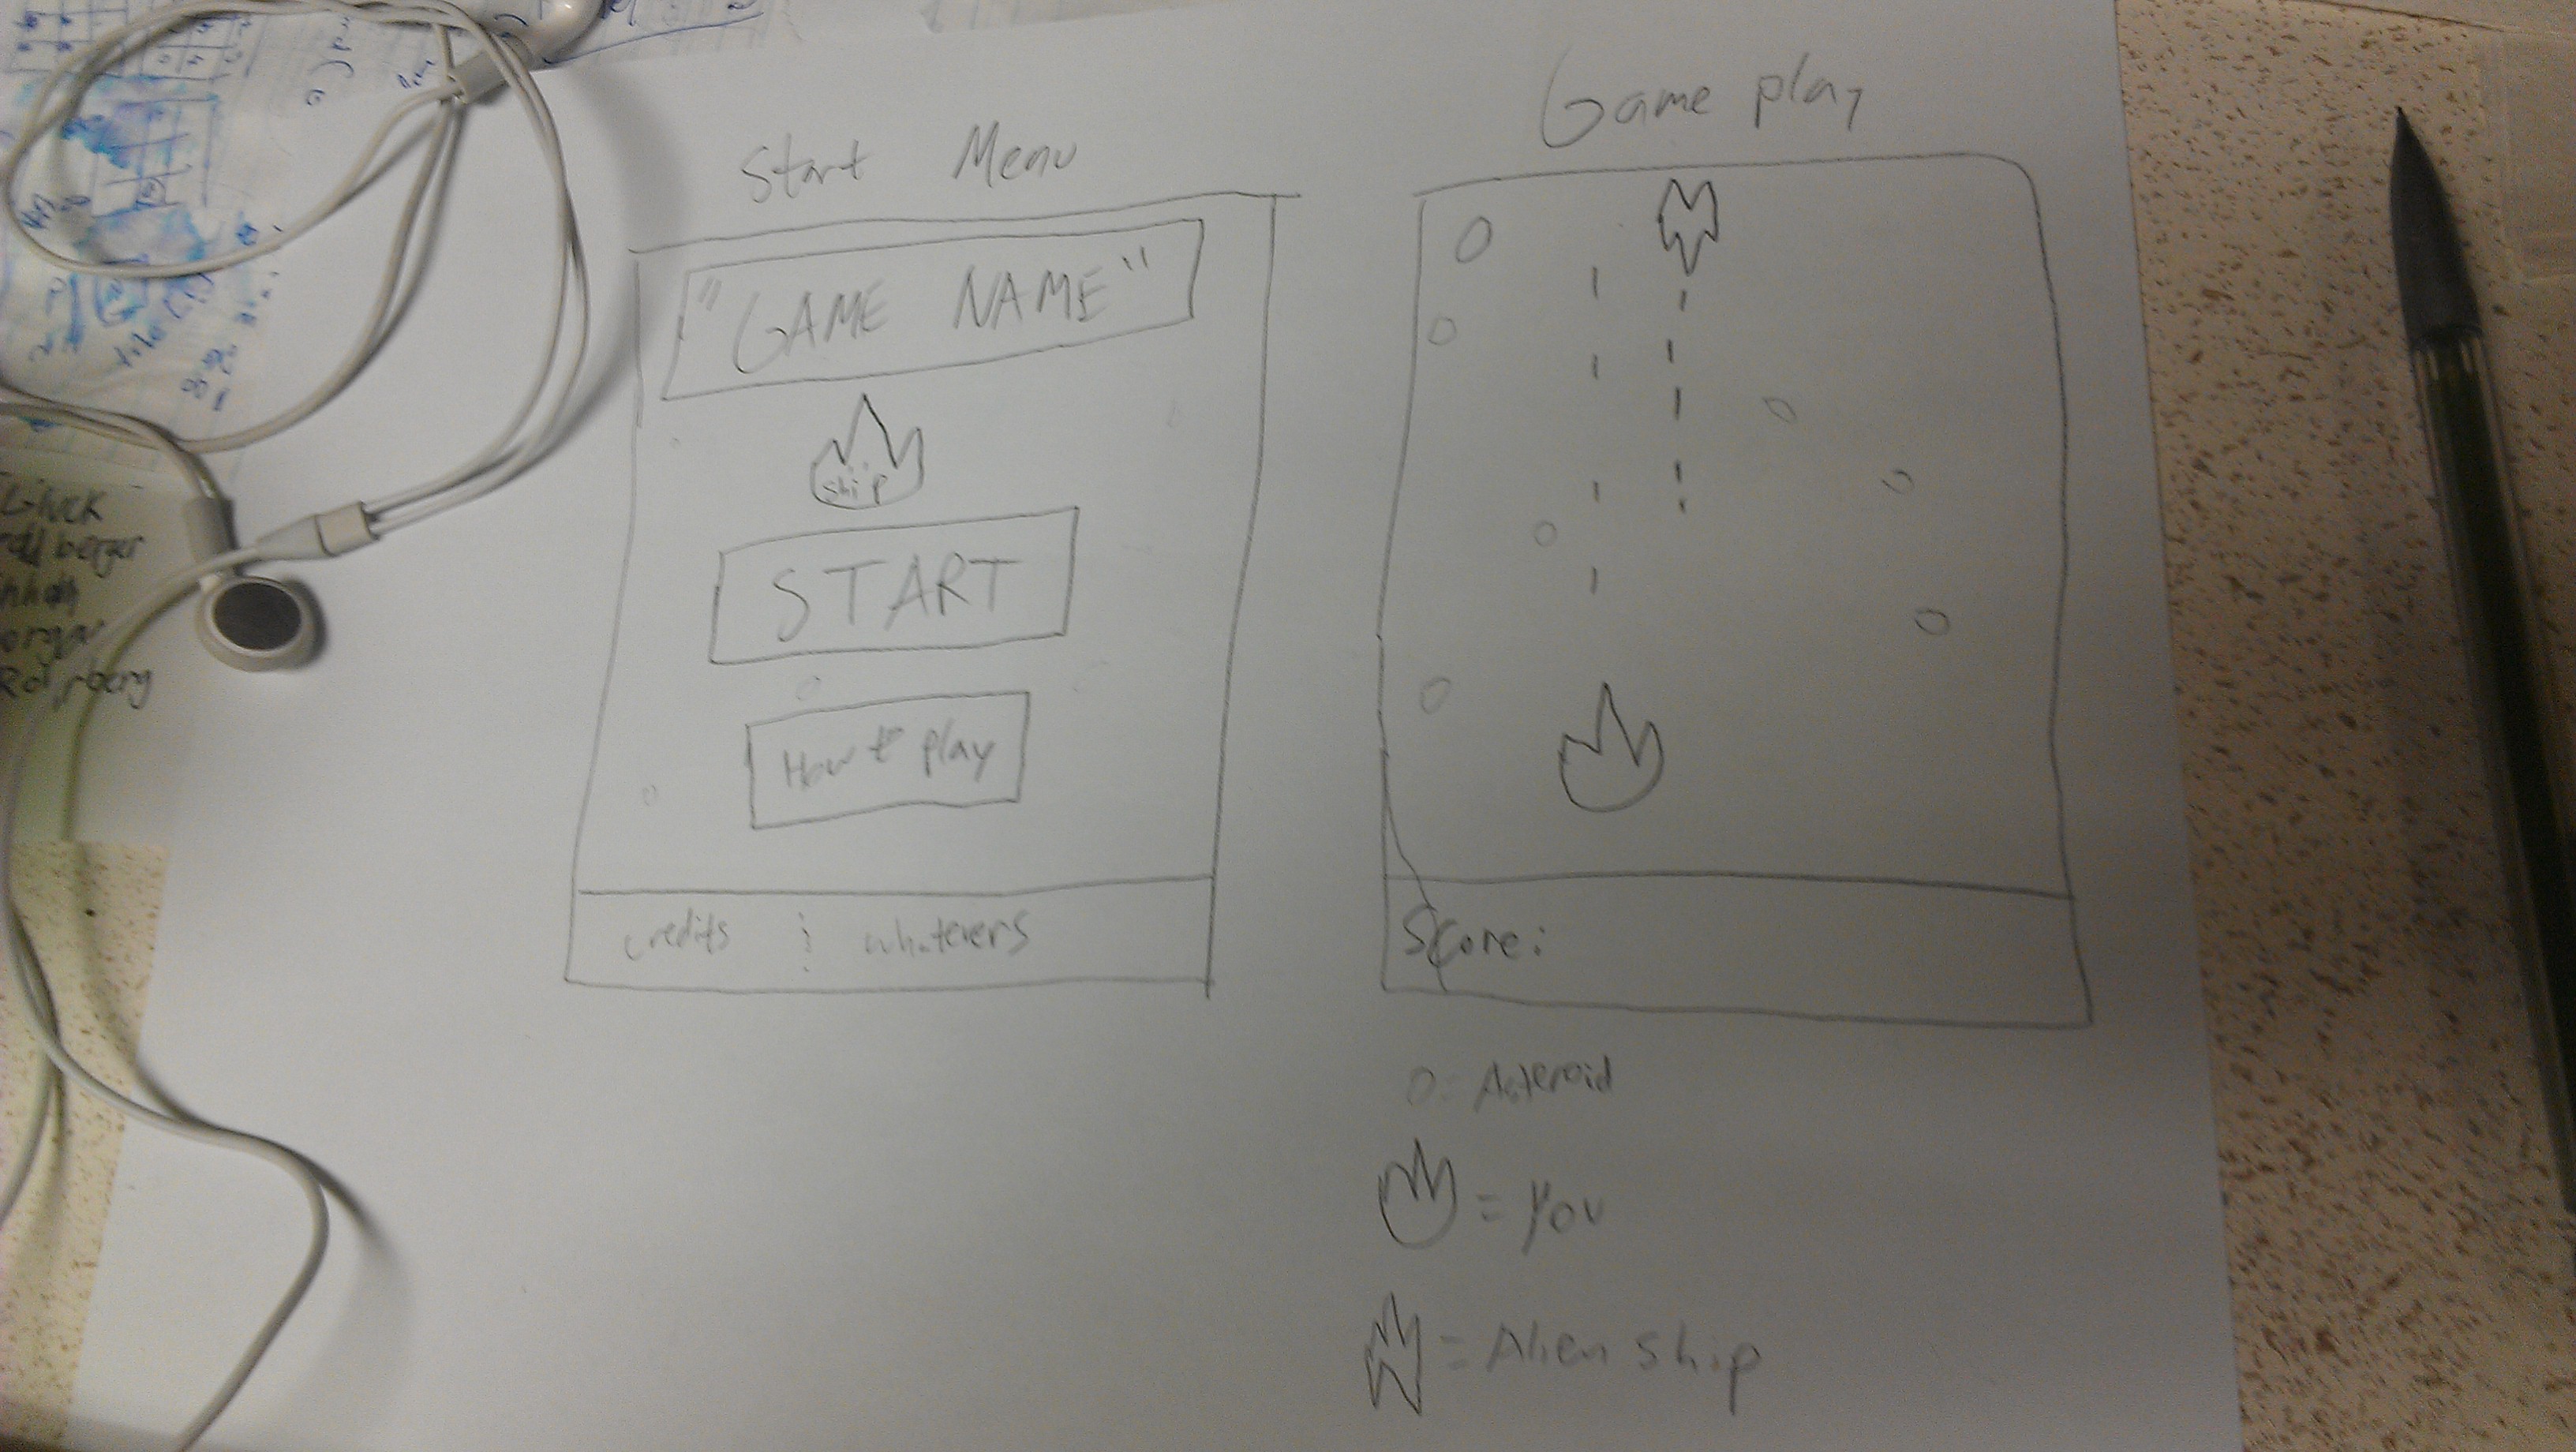 Start Menu
"GAME NAME"
ship
START
How to play
credits
whatevers
Game play
Score:
O = Asteroid
= you
= Alien ship
Gluck